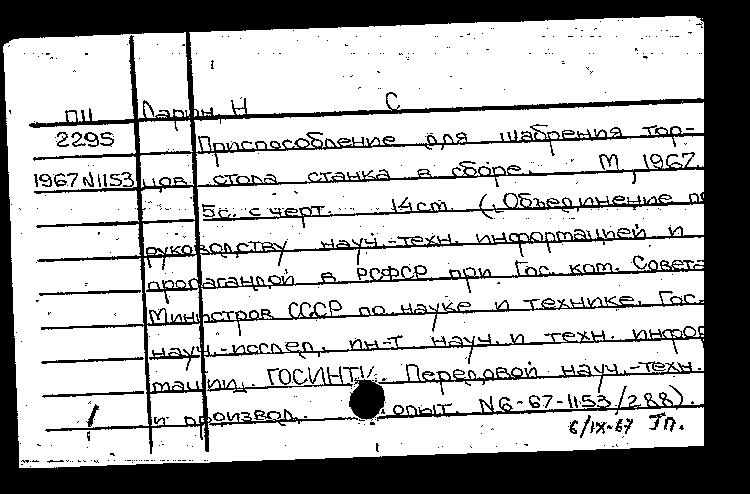 ПII Ларин, Н С
2295 Приспособление для шабрения тор-
1967 N1153 цов стола станка в сборе. М, 1967.
5с. с черт. 14cm. (Объединение по
руководству науч.-техн. информацией и
пропагандой в РСФСР при Гос. ком. Совета
Министров СССР по науке и технике. Гос.
науч.-исслед. ин-т науч. и техн. инфор
мации. ГОСИНТИ. Передовой науч.-техн.
и производ. опыт. N6-67-1153/288).
6/IX-67 Тп.